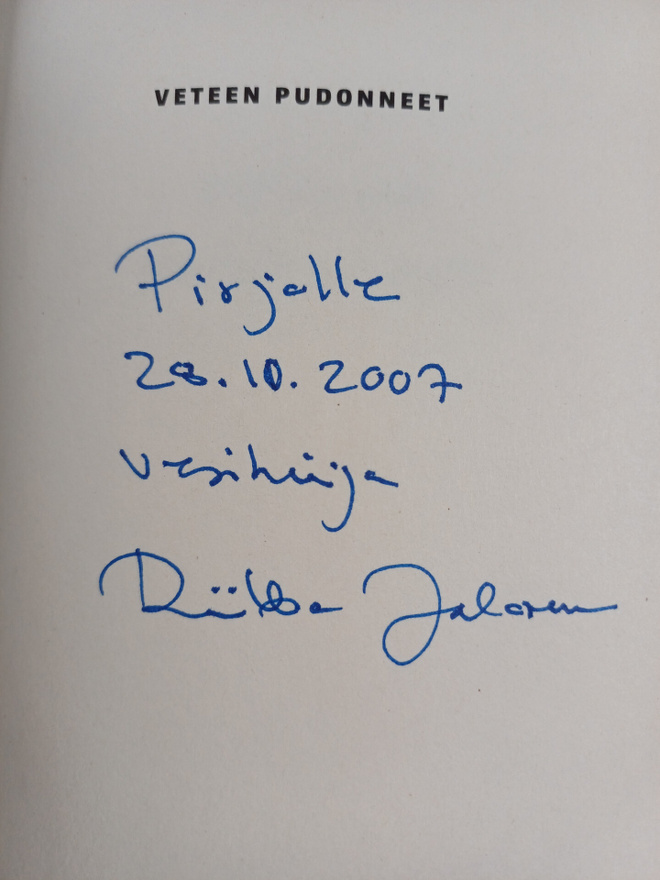 VETEEN PUDONNEET
Pirjalle
28.10.2007
vesihiisi
Riikka Jalonen